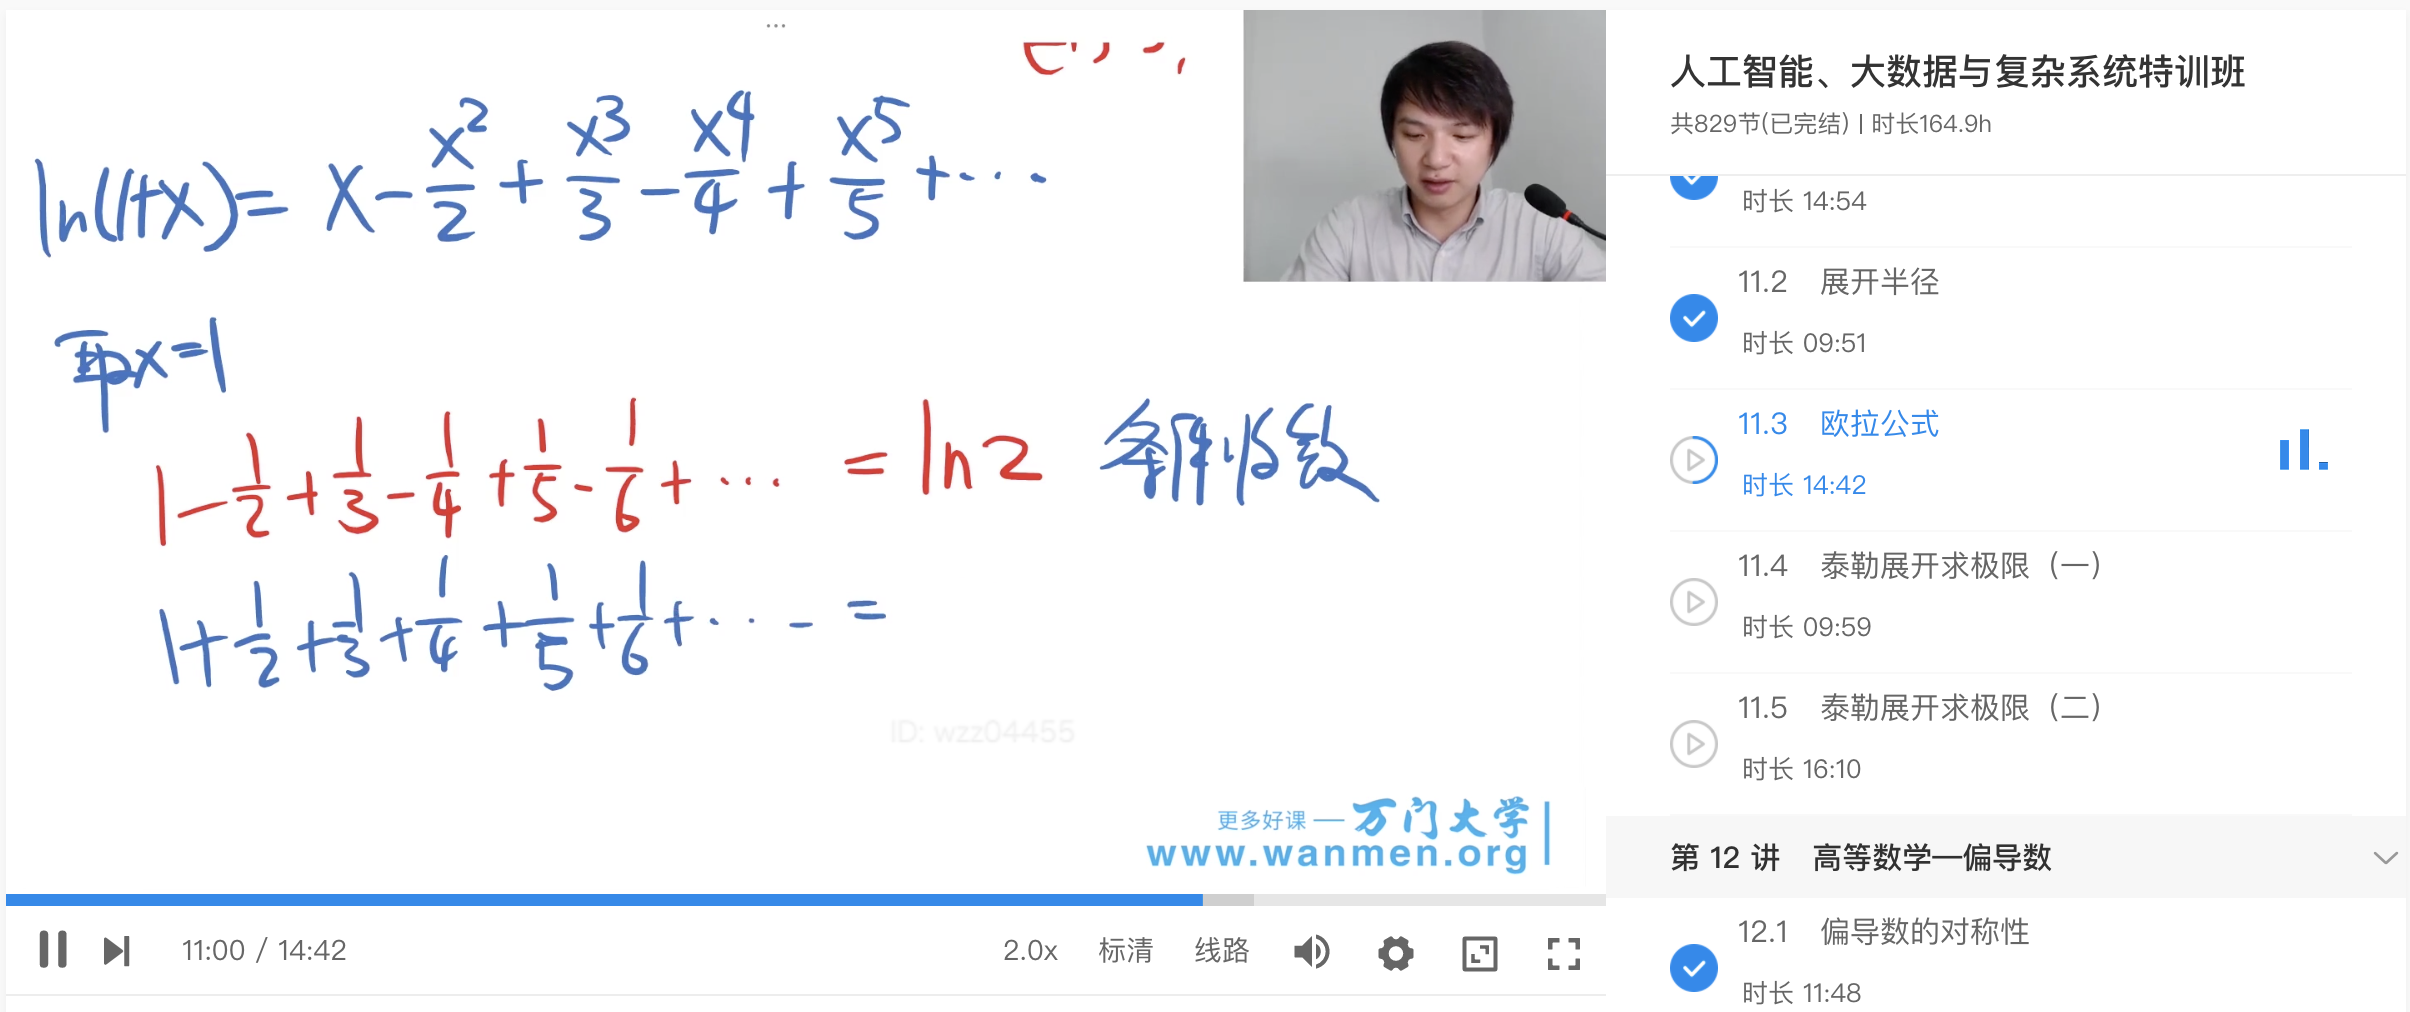 ...
ln(1+x)= x-x²/2+x³/3-x⁴/4+x⁵/5+···
取x=1
1-1/2+1/3-1/4+1/5-1/6+··· =ln2 条件收敛
1+1/2+1/3+1/4+1/5+1/6+···- =
ID: wzz04455
更多好课 — 万门大学
www.wanmen.org
11:00 / 14:42
2.0x 标清 线路
人工智能、大数据与复杂系统特训班
共829节(已完结) | 时长164.9h
时长 14:54
11.2 展开半径
时长 09:51
11.3 欧拉公式
时长 14:42
11.4 泰勒展开求极限（一）
时长 09:59
11.5 泰勒展开求极限（二）
时长 16:10
第 12 讲 高等数学—偏导数
12.1 偏导数的对称性
时长 11:48